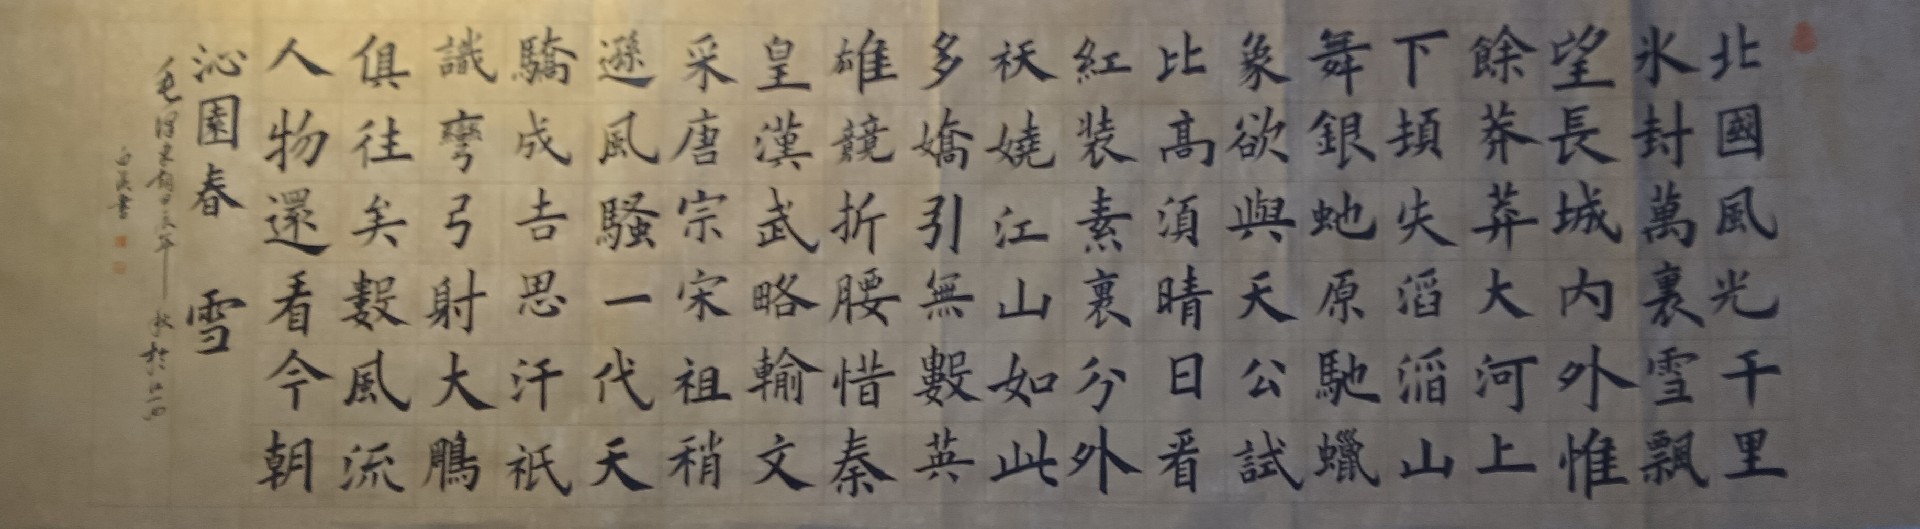 北國風光千里
氷封萬裏雪飄
望長城内外惟
餘莽莽大河上
下頓失滔滔山
舞銀虵原馳蠟
象欲與天公試
比高須晴日看
紅装素裹分外
祅嬈江山如此
多嬌引無數英
雄競折腰惜秦
皇漢武略輸文
采唐宗宋祖稍
遜風騷一代天
驕成吉思汗祇
識彎弓射大鵰
俱往矣數風流
人物還看今朝
沁園春 雪
毛澤東詞甲辰年秋於江西
書